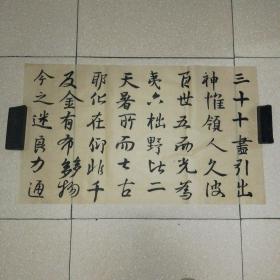 三十十盡引出
神惟領人久波
百世五而光為
夷六柮野比二
天暑所而七古
耶化在仰此千
及金有布多物
今之迷良力通